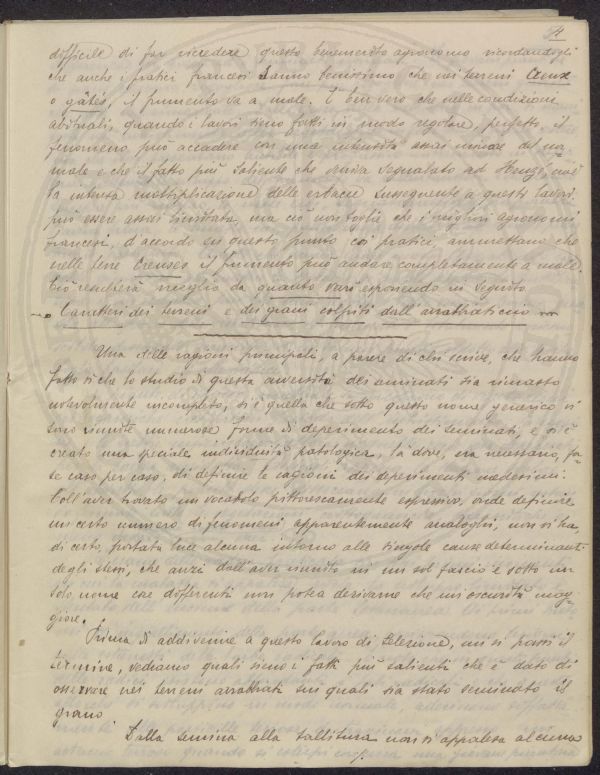 4
difficile di far ricredere questo benemerito agronomo ricordandogli
che anche i pratici francesi sanno benissimo che nei terreni Creux
o gâtés, il frumento va a male. È ben vero che nelle condizioni
abituali, quando i lavori sieno fatti in modo regolare, perfetto, il
fenomeno può accadere con una intensità assai minore del nor=
male e che il fatto più saliente che veniva segnalato ad Heuzé, cioè
la intensa moltiplicazione delle erbacce susseguente a questi lavori
può essere assai limitata ma ciò non toglie che i migliori agronomi
francesi, d'accordo su questo punto coi pratici, ammettano che
nelle terre Creuses il frumento può andare completamente a male.
Ciò resulterà meglio da quanto verrò esponendo in seguito.
Caratteri dei terreni e dei grani colpiti dall'arrabbaticcio
Una delle ragioni principali, a parere di chi scrive, che hanno
fatto sì che lo studio di questa avversità dei seminati sia rimasto
notevolmente incompleto, si è quella che sotto questo nome generico si
sono riunite numerose forme di deperimento dei seminati, e si è
creato una speciale individualità patologica, là dove, era necessario, for=
se caso per caso, di definire le cagioni dei deperimenti medesimi.
Coll'aver trovato un vocabolo pittorescamente espressivo, onde definire
un certo numero di fenomeni apparentemente analoghi, non si ha,
di certo, portata luce alcuna intorno alle singole cause determinanti
degli stessi, che anzi dall'aver riunito in un sol fascio e sotto un
solo nome cose differenti non potea derivarne che un'oscurità mag=
giore.
Prima di addivenire a questo lavoro di selezione, mi si passi il
termine, vediamo quali sieno i fatti più salienti che è dato di
osservare nei terreni arrabbiati sui quali sia stato seminato il
grano
Dalla semina alla tallitura non si appalesa alcuna